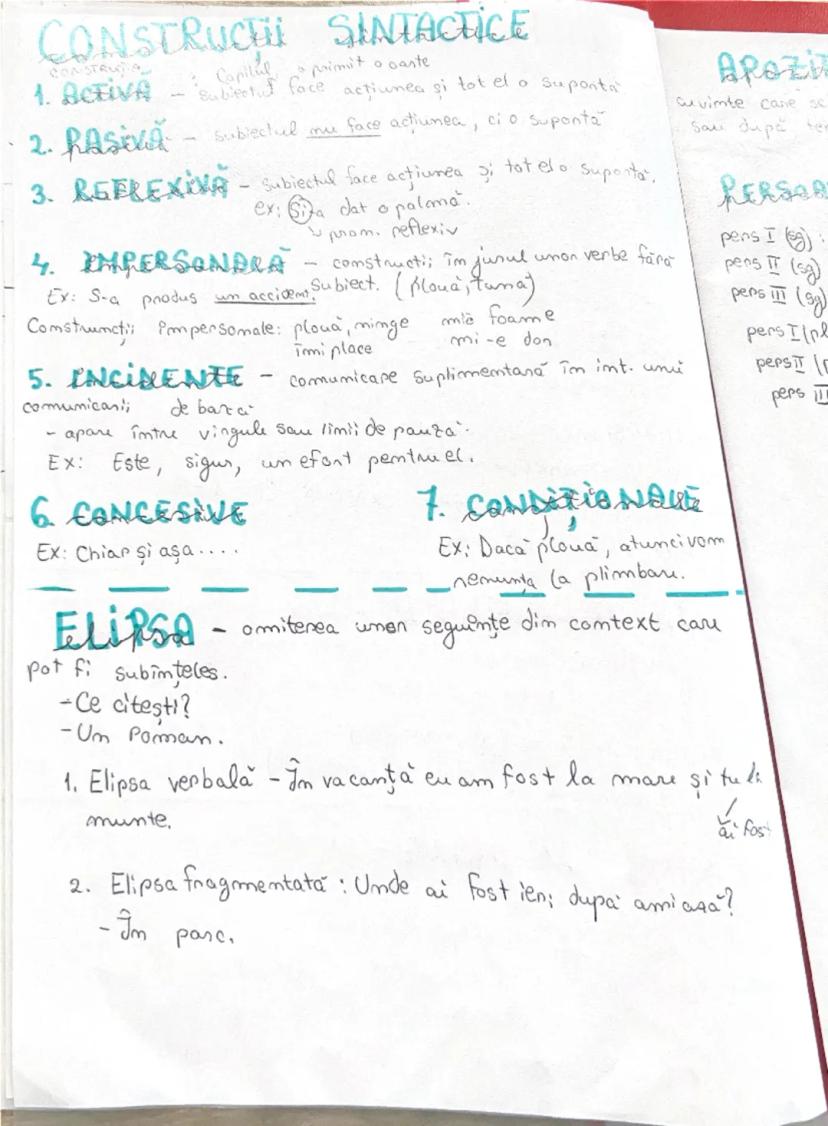 CONSTRUCȚII SINTACTICE
CONSTRUCȚIA : Copilul a primit o carte
1. ACTIVĂ - subiectul face acțiunea și tot el o suportă
2. PASIVĂ - subiectul nu face acțiunea, ci o suportă
3. REFLEXIVĂ - subiectul face acțiunea și tot el o suportă.
ex: Și-a dat o palmă.
↳ pron. reflexiv
4. IMPERSONALĂ - construcții în jurul unor verbe fără
subiect. (plouă, tuna)
Ex: S-a produs un accident.
Construncții impersonale: plouă, ninge mie foame
îmi place mi-e dor
5. INCIDENTE - comunicare suplimentară în int. unui
comunicării de bază
- apare între virgule sau linii de pauză.
Ex: Este, sigur, un efort pentru el.
6. CONCESIVE
Ex: Chiar și așa....
7. CONDIȚIONALE
Ex: Dacă plouă, atunci vom
renunța la plimbare.
ELIPSA - omiterea unor seguențe din context care
pot fi subînțeles.
- Ce citești?
- Un roman.
1. Elipsa verbală - În vacanță eu am fost la mare și tu la
munte.
ai fost
2. Elipsa fragmentată : Unde ai fost ieri după amiază?
- În parc.
cuvinte care
sau după
pers I (sg) :
pers II (sg)
pers III (sg)
pers I (pl
pers II (p
pers III